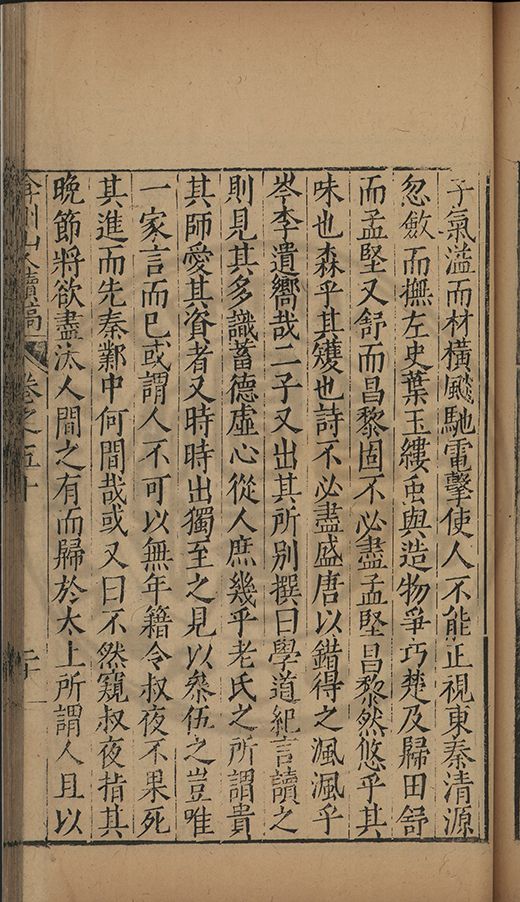 子氣溢而材橫飈馳電擊使人不能正視東秦清源
忽斂而撫左史葉玉縷虫與造物爭巧楚及歸田舒
而孟堅又舒而昌黎固不必盡孟堅昌黎然悠乎其
味也森乎其矱也詩不必盡盛唐以錯得之渢渢乎
岑李遺嚮哉二子又出其所別撰曰學道紀言讀之
則見其多識蓄德虛心從人庶幾乎老氏之所謂貴
其師愛其資者又時時出獨至之見以叅伍之豈唯
一家言而已或謂人不可以無年籍令叔夜不果死
其進而先秦鄴中何間哉或又曰不然窺叔夜指其
晚節將欲盡汰人間之有而歸於太上所謂人且以
弇州山人續稿 卷之五十 二十